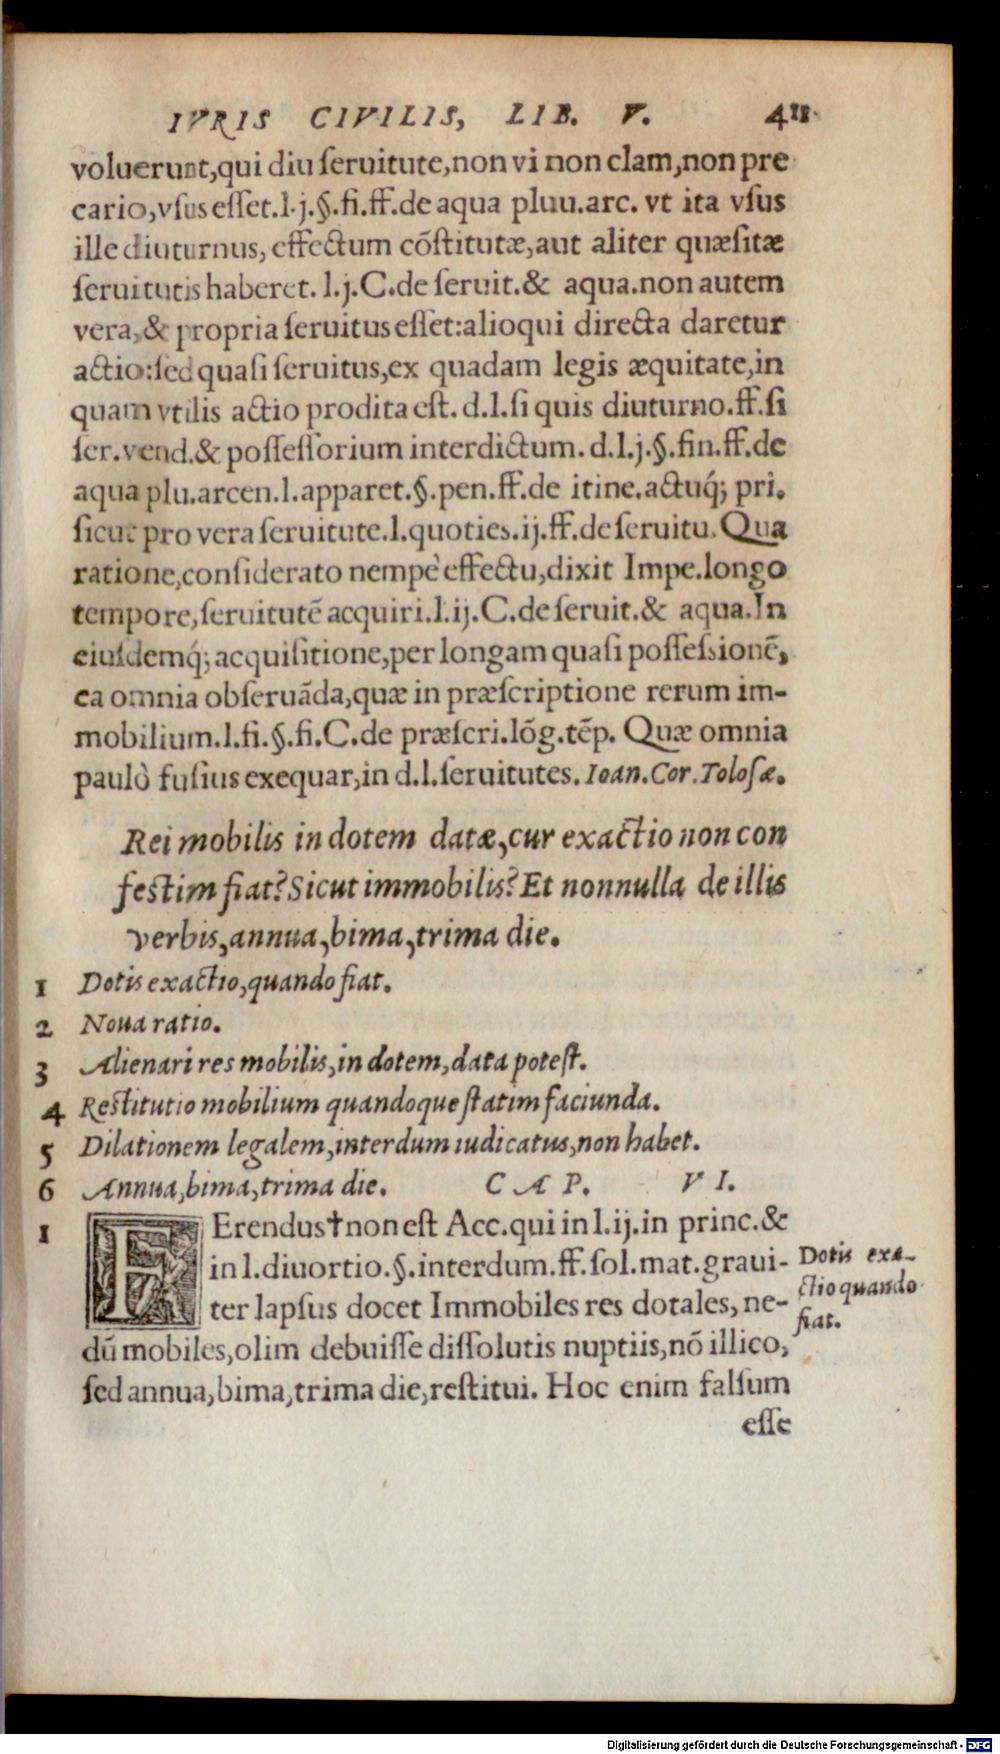 IVRIS CIVILIS, LIB. V. 411
voluerunt,qui diu ſeruitute,non vi non clam,non pre
cario,vſus eſſet.l.j.§.fi.ff.de aqua pluu.arc. vt ita vſus
ille diuturnus, effectum cōſtitutæ,aut aliter quæſitæ
ſeruitutis haberet. l.j.C.de ſeruit.& aqua.non autem
vera,& propria ſeruitus eſſet:alioqui directa daretur
actio:ſed quaſi ſeruitus,ex quadam legis æquitate,in
quam vtilis actio prodita eſt. d.l.ſi quis diuturno.ff.ſi
ſer.vend.& poſſeſſorium interdictum. d.l.j.§.fin.ff.de
aqua plu.arcen.l.apparet.§.pen.ff.de itine.actuq́; pri.
ſicut pro vera ſeruitute.l.quoties.ij.ff.de ſeruitu. Qua
ratione,conſiderato nempè effectu,dixit Impe.longo
tempore,ſeruitutē acquiri.l.ij.C.de ſeruit.& aqua.In
eiuſdemq́; acquiſitione,per longam quaſi poſſeſsionē,
ea omnia obſeruāda,quæ in præſcriptione rerum im-
mobilium.l.fi.§.fi.C.de præſcri.lōg.tēp. Quæ omnia
paulò fuſius exequar,in d.l.ſeruitutes. Ioan.Cor.Toloſæ.
Rei mobilis in dotem datæ,cur exactio non con
feſtim fiat? Sicut immobilis? Et nonnulla de illis
verbis,annua,bima,trima die.
1 Dotis exactio,quando fiat.
2 Noua ratio.
3 Alienari res mobilis,in dotem,data poteſt.
4 Reſtitutio mobilium quandoque ſtatim faciunda.
5 Dilationem legalem,interdum iudicatus,non habet.
6 Annua,bima,trima die. CAP. VI.
1 FErendus†non eſt Acc.qui in l.ij.in princ.&
in l.diuortio.§.interdum.ff.ſol.mat.graui-
ter lapſus docet Immobiles res dotales, ne-
dū mobiles,olim debuiſſe diſſolutis nuptiis,nō illico,
ſed annua,bima,trima die,reſtitui. Hoc enim falſum
eſſe
Dotis exa-
ctio quando
fiat.
Digitalisierung gefördert durch die Deutsche Forschungsgemeinschaft - DFG